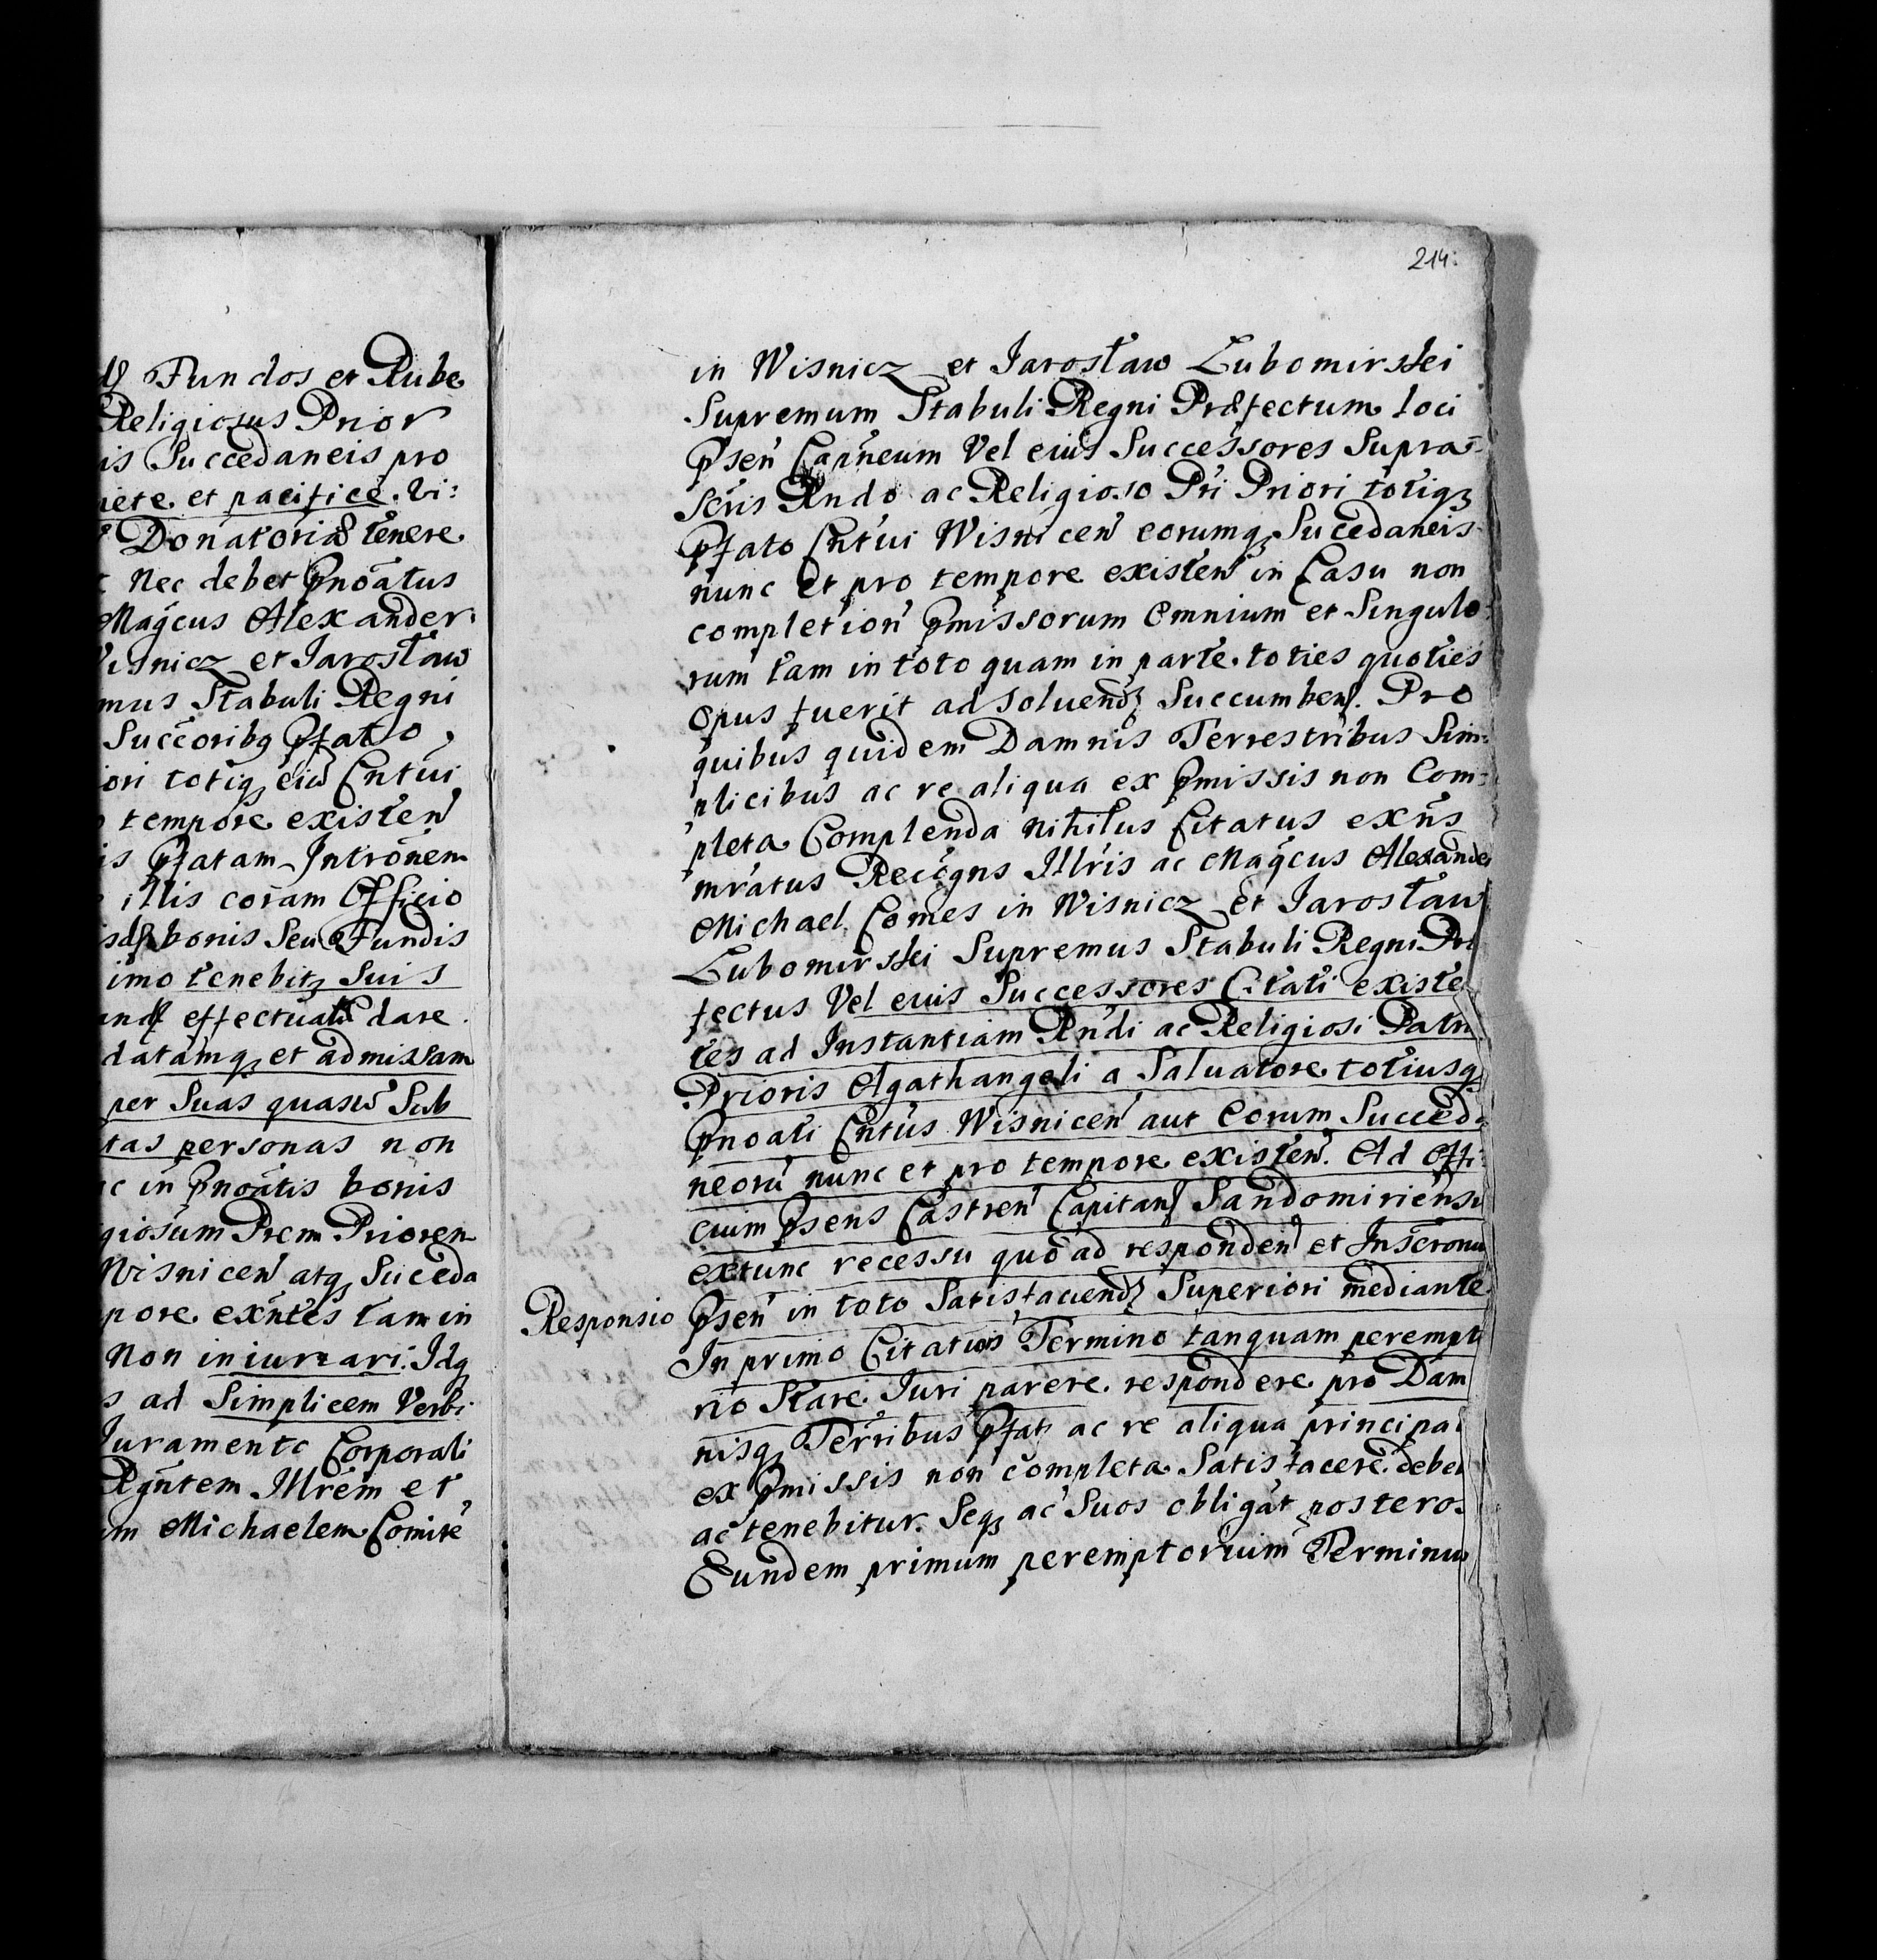 Fundos et Rube
Religiosus Prior
is Succedaneis pro
iete et pacifice. Vi:
Donatorias tenere
Nec debet Pnoatus
Magcus Alexander
Wisnicz et Jarosław
mus Stabuli Regni
Succoribq Pfato
ori totiq eius Cntui
tempore existen
is Pfatam Intronem
illis coram Officio
bonis Seu Fundis
imo tenebitz Suis
effectuatu dare
datamq et admissam
per Suas quasu Sub
tas personas non
c in Pnoatis bonis
giosum Prem Priorem
Wisnicen atq Succeda
pore exntes tam in
Non iniuriari. Idq
s ad Simplicem Verbi
Juramento Corporali
Rgntem Illrem et
m Michaelem Comite
214.
in Wisnicz et Jarosław Lubomirski
Supremum Stabuli Regni Præfectum loci
Psen Capneum Vel eius Successores Supra-
Scris Rndo ac Religioso Pri Priori totiq
Pfato Cntui Wisnicen eorumq Sucedaneis
nunc et pro tempore existen in Casu non
completion Pmissorum Omnium et Singulo-
rum tam in toto quam in parte toties quoties
opus fuerit ad soluend Succumben. Pro
quibus quidem Damnis Terrestribus Sim=
plicibus ac re aliqua ex Pmissis non Com=
pleta Complenda nihilus Citatus exns
mratus Recogns Illris ac Magcus Alexande
Michael Comes in Wisnicz et Jarosław
Lubomirski Supremus Stabuli Regni Præ
fectus Vel eius Successores Citati existe
tes ad Instantiam Rndi ac Religiosi Patri
Prioris Agathangeli a Saluatore totiusq
Pnoati Cntus Wisnicen aut Eorum Succeda
neoru nunc et pro tempore existen. Ad Offi
cium Psens Castren Capitan Sandomiriens
extunc recessu quo ad responden et Inscronu
Responsio
Psen in toto Satisfaciend Superiori mediante
In primo Citatuis Termino tanquam perempto
rio Stare Juri parere respondere pro Dam
nisq Terribus Pfat ac re aliqua principal
ex Pmissis non completa Satisfacere debet
ac tenebitur. Seq ac Suos obligat posteros
Eundem primum peremptorium Terminu